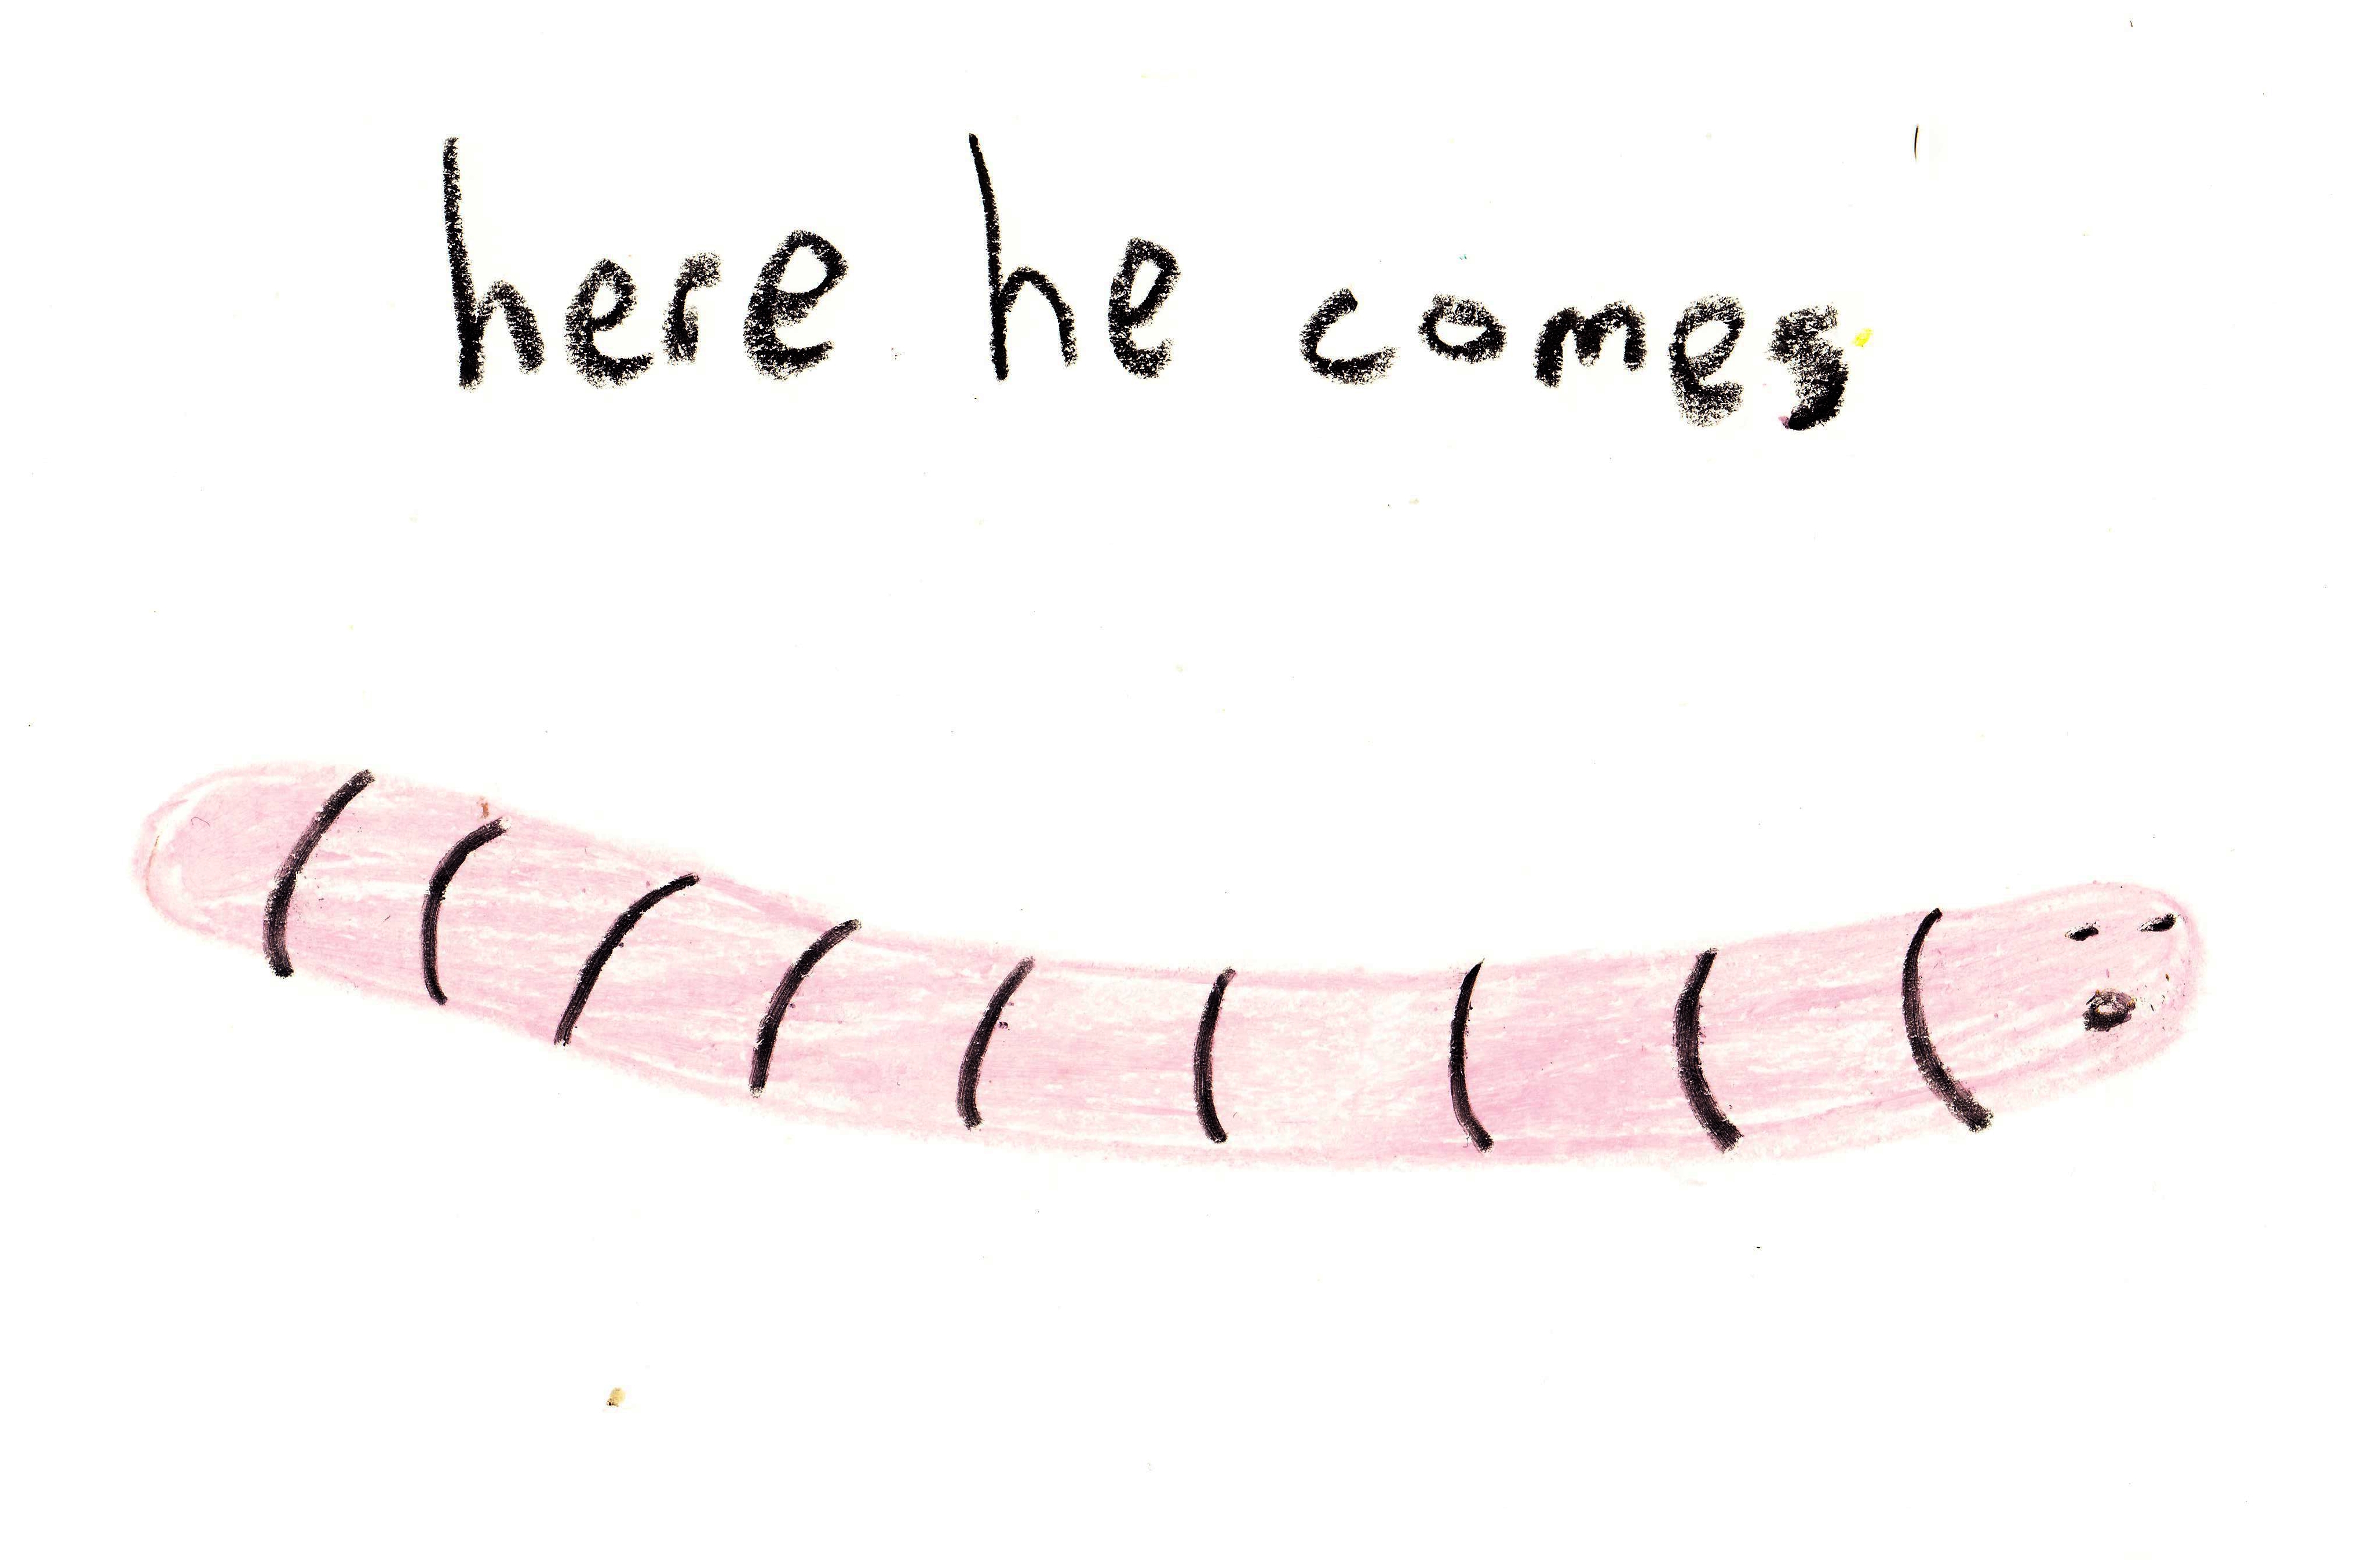 here he comes